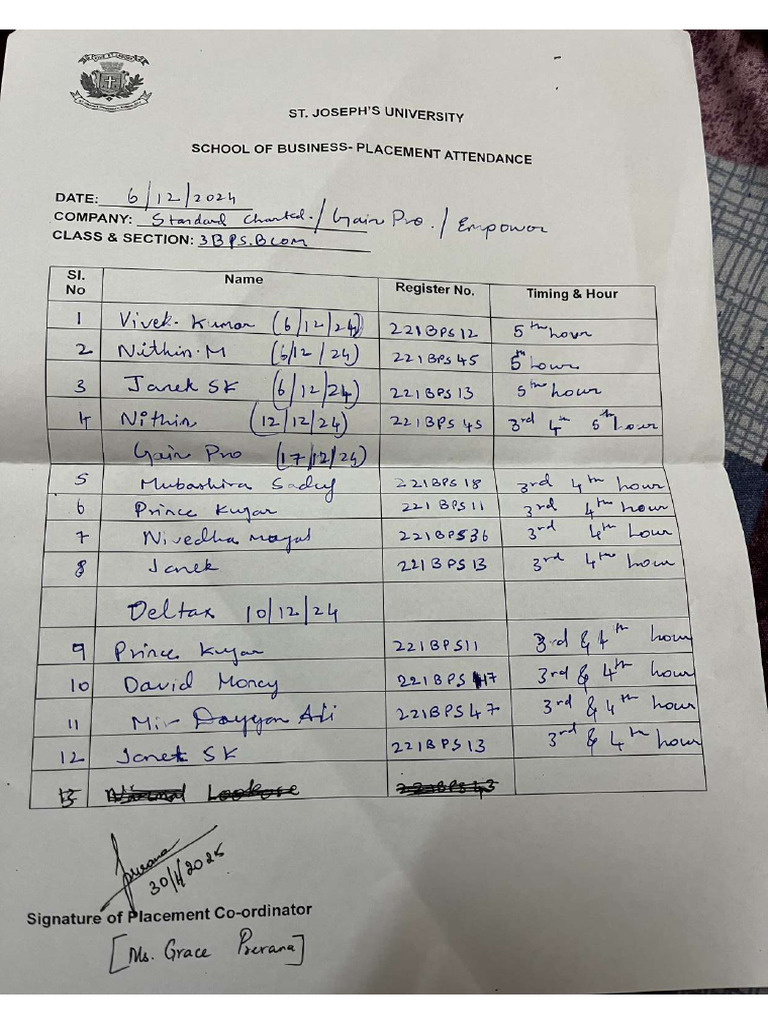 ST. JOSEPH'S UNIVERSITY
SCHOOL OF BUSINESS- PLACEMENT ATTENDANCE
DATE: 6/12/2024
COMPANY: Standard Charted. / Gain Pro. / Empower
CLASS & SECTION: 3BPS.BCOM
Sl. No Name Register No. Timing & Hour
1 Vivek. Kumar (6/12/24) 221BPS12 5th hour
2 Nithin.M (6/12/24) 221BPS45 5th hour
3 Janek SK (6/12/24) 221BPS13 5th hour
4 Nithin (12/12/24) 221BPS45 3rd 4th 5th hour
Gain Pro (17/12/24)
5 Mubashira 221BPS18 3rd 4th hour
6 Prince Kujar 221BPS11 3rd 4th hour
7 Nivedha 221BPS36 3rd 4th hour
8 Janek 221BPS13 3rd 4th hour
Deltax 10/12/24
9 Prince Kujar 221BPS11 3rd & 4th hour
10 David Moncy 221BPS 3rd & 4th hour
11 Mir Dayyan Ali 221BPS47 3rd & 4th hour
12 Janek SK 221BPS13 3rd & 4th hour
13
30/1/2025
Signature of Placement Co-ordinator
[Ms. Grace Prerana]